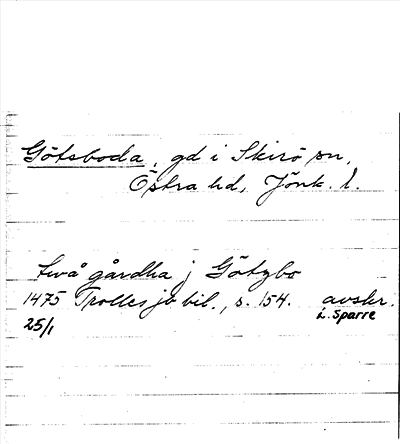 Götsboda, gd i Skirö sn,
Östra hd, Jönk. l.
två gårdha j Götzbo
1475 Trolles jb bil., s. 154. avskr.
25/1 L. Sparre